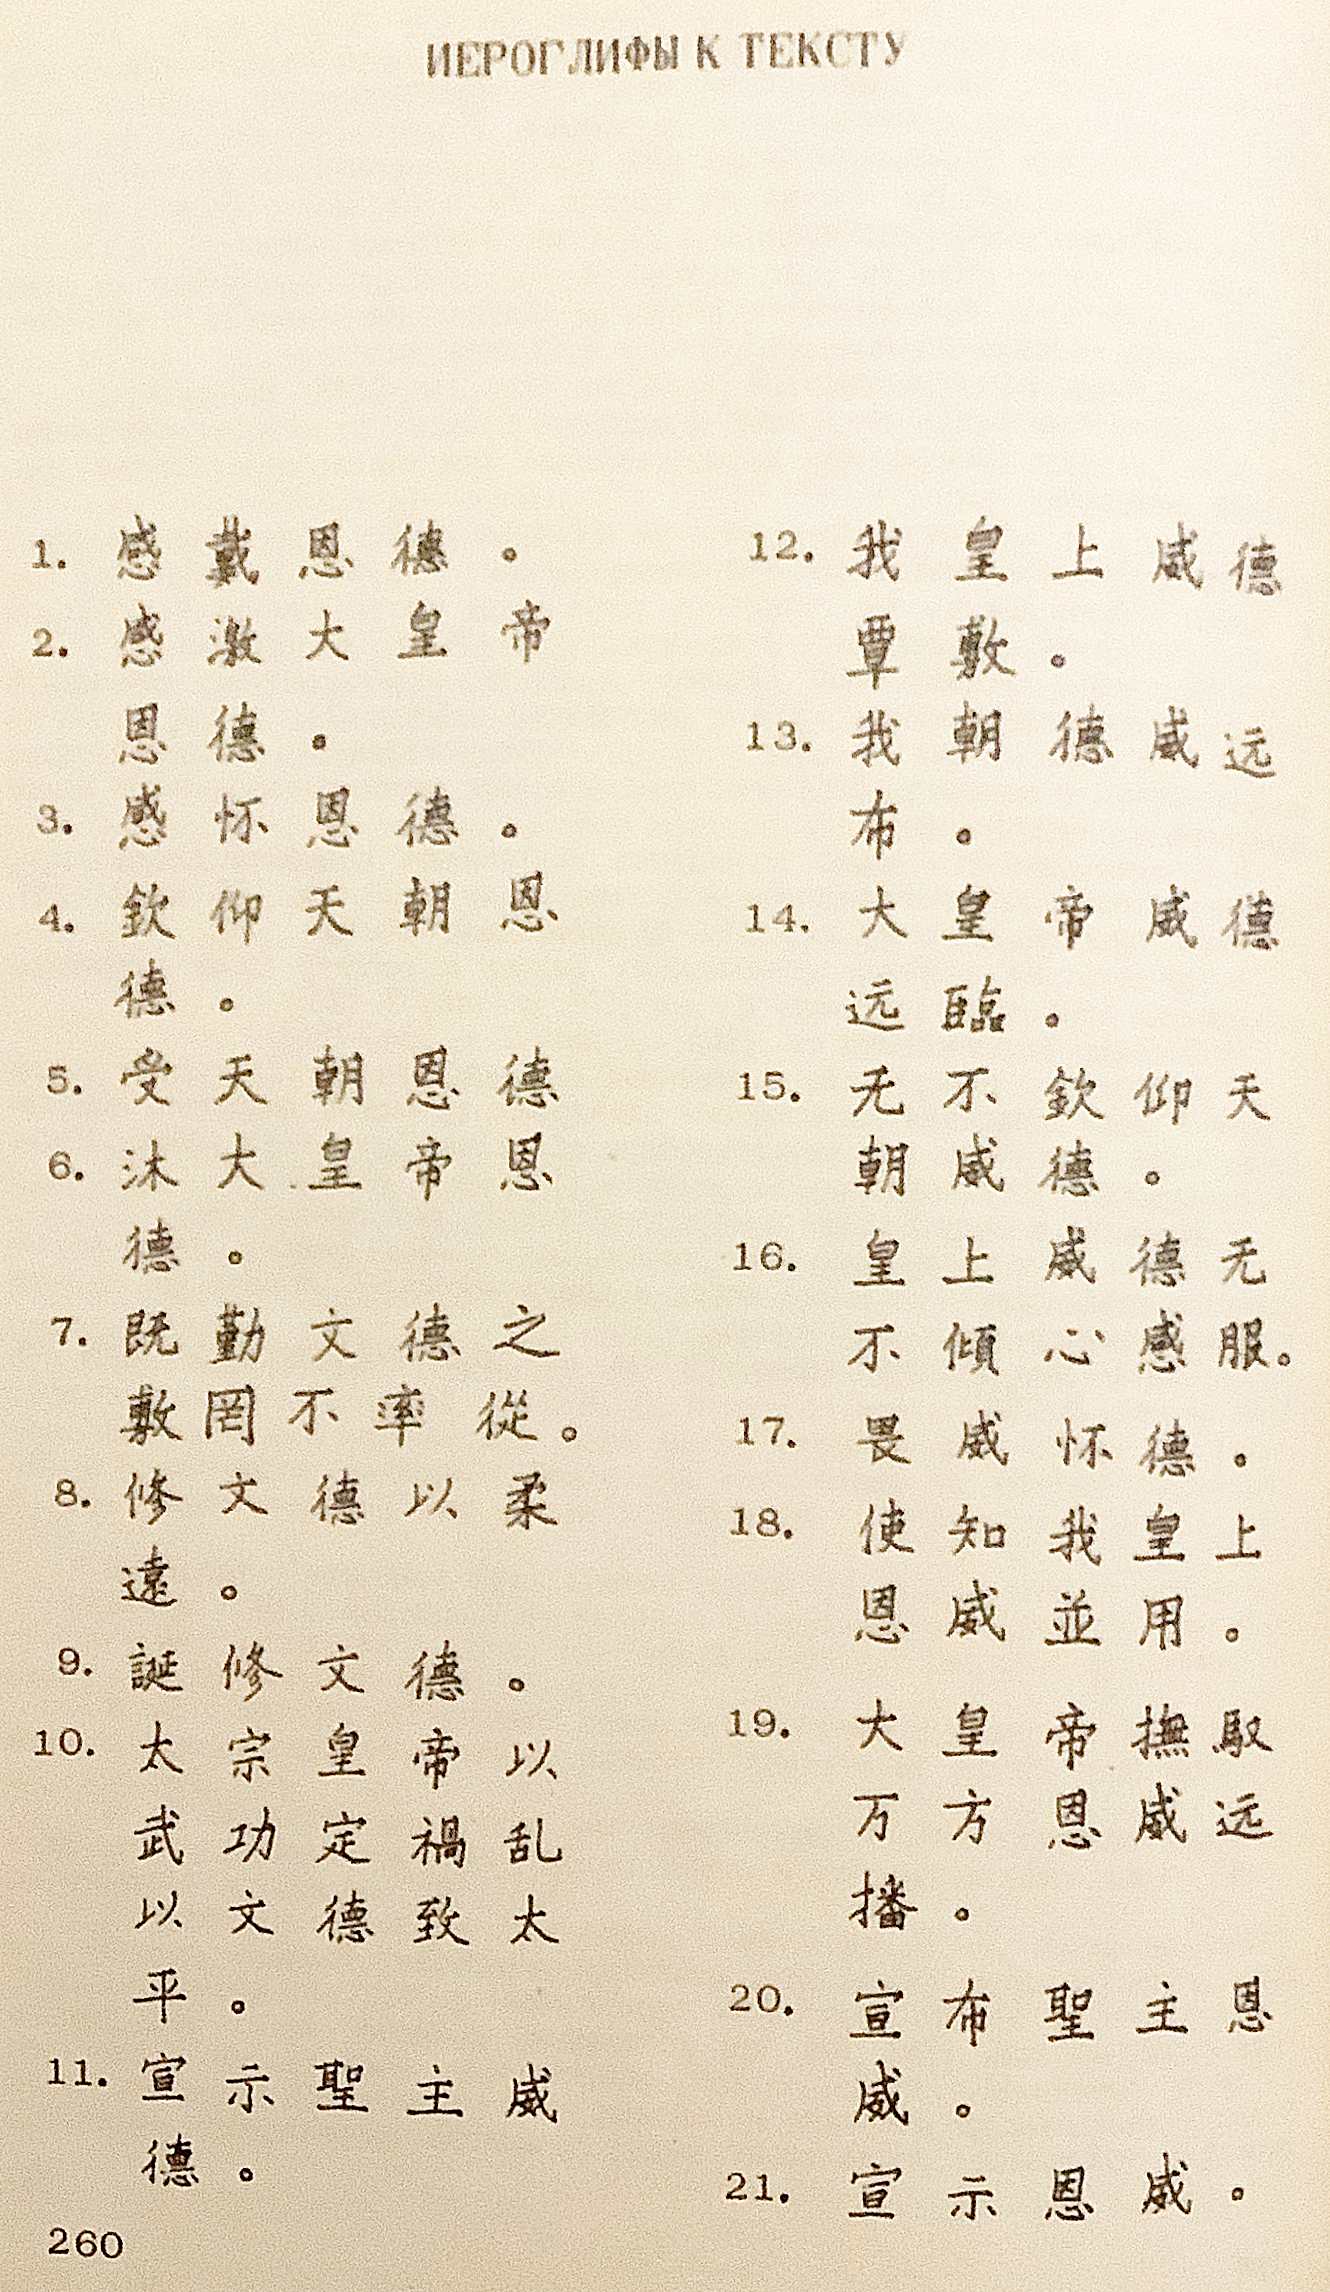 ИЕРОГЛИФЫ К ТЕКСТУ
1. 感戴恩德。
2. 感激大皇帝
恩德。
3. 感怀恩德。
4. 欽仰天朝恩
德。
5. 受天朝恩德
6. 沐大皇帝恩
德。
7. 既勤文德之
敷罔不率從。
8. 修文德以柔
遠。
9. 誕修文德。
10. 太宗皇帝以
武功定禍乱
以文德致太
平。
11. 宣示聖主威
德。
260
12. 我皇上威德
覃敷。
13. 我朝德威远
布。
14. 大皇帝威德
远臨。
15. 无不欽仰天
朝威德。
16. 皇上威德无
不傾心感服。
17. 畏威怀德。
18. 使知我皇上
恩威並用。
19. 大皇帝撫馭
万方恩威远
播。
20. 宣布聖主恩
威。
21. 宣示恩威。